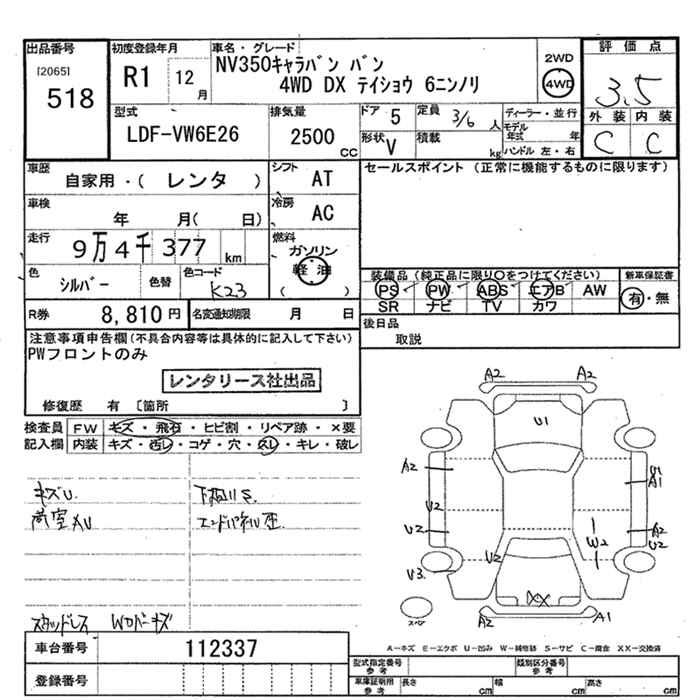 出品番号 初度登録年月 車名・グレード 2WD 評価点
[2065] 518 R1 12月 NV350キャラバン バン 4WD
4WD DX テイショウ 6ニンノリ 3.5
型式 排気量 ドア 5 定員 3/6人 ディーラー・並行 外装 内装
LDF-VW6E26 2500cc 形状 V 積載 kg モデル年式 年 ハンドル 左・右 C C
車歴 自家用・(レンタ) シフト AT セールスポイント (正常に機能するものに限ります)
車検 年 月( 日) 冷房 AC
走行 9万4千377km 燃料 ガソリン 軽油 ( )
色 シルバー 色替 色コード K23
装備品 (純正品に限り○をつけてください) 新車保証書
PS PW ABS エアB AW 有・無
SR ナビ TV カワ
R券 8,810円 名変通知期限 月 日 後日品
取説
注意事項申告欄 (不具合内容等は具体的に記入して下さい)
PWフロントのみ
レンタリース社出品
修復歴 有 〔箇所 〕
検査員 FW キズ・飛石・ヒビ割・リペア跡・×要
記入欄 内装 キズ・汚レ・コゲ・穴・スレ・キレ・破レ
キズU 下廻りS
荷室AU エンドパネル歪
スタッドレス Wカバーキズ
A2 A2
U1
A2 U1
A1
U2
U2 W2 A2
U2
U2
V3
XX
スペア A2 A1
A-キズ E-エクボ U-凹み W-補修跡 S-サビ C-腐食 XX-交換済
車台番号 112337
登録番号
型式指定番号 参考 類別区分番号 参考
車庫証明用 参考 長さ cm 幅 cm 高さ cm